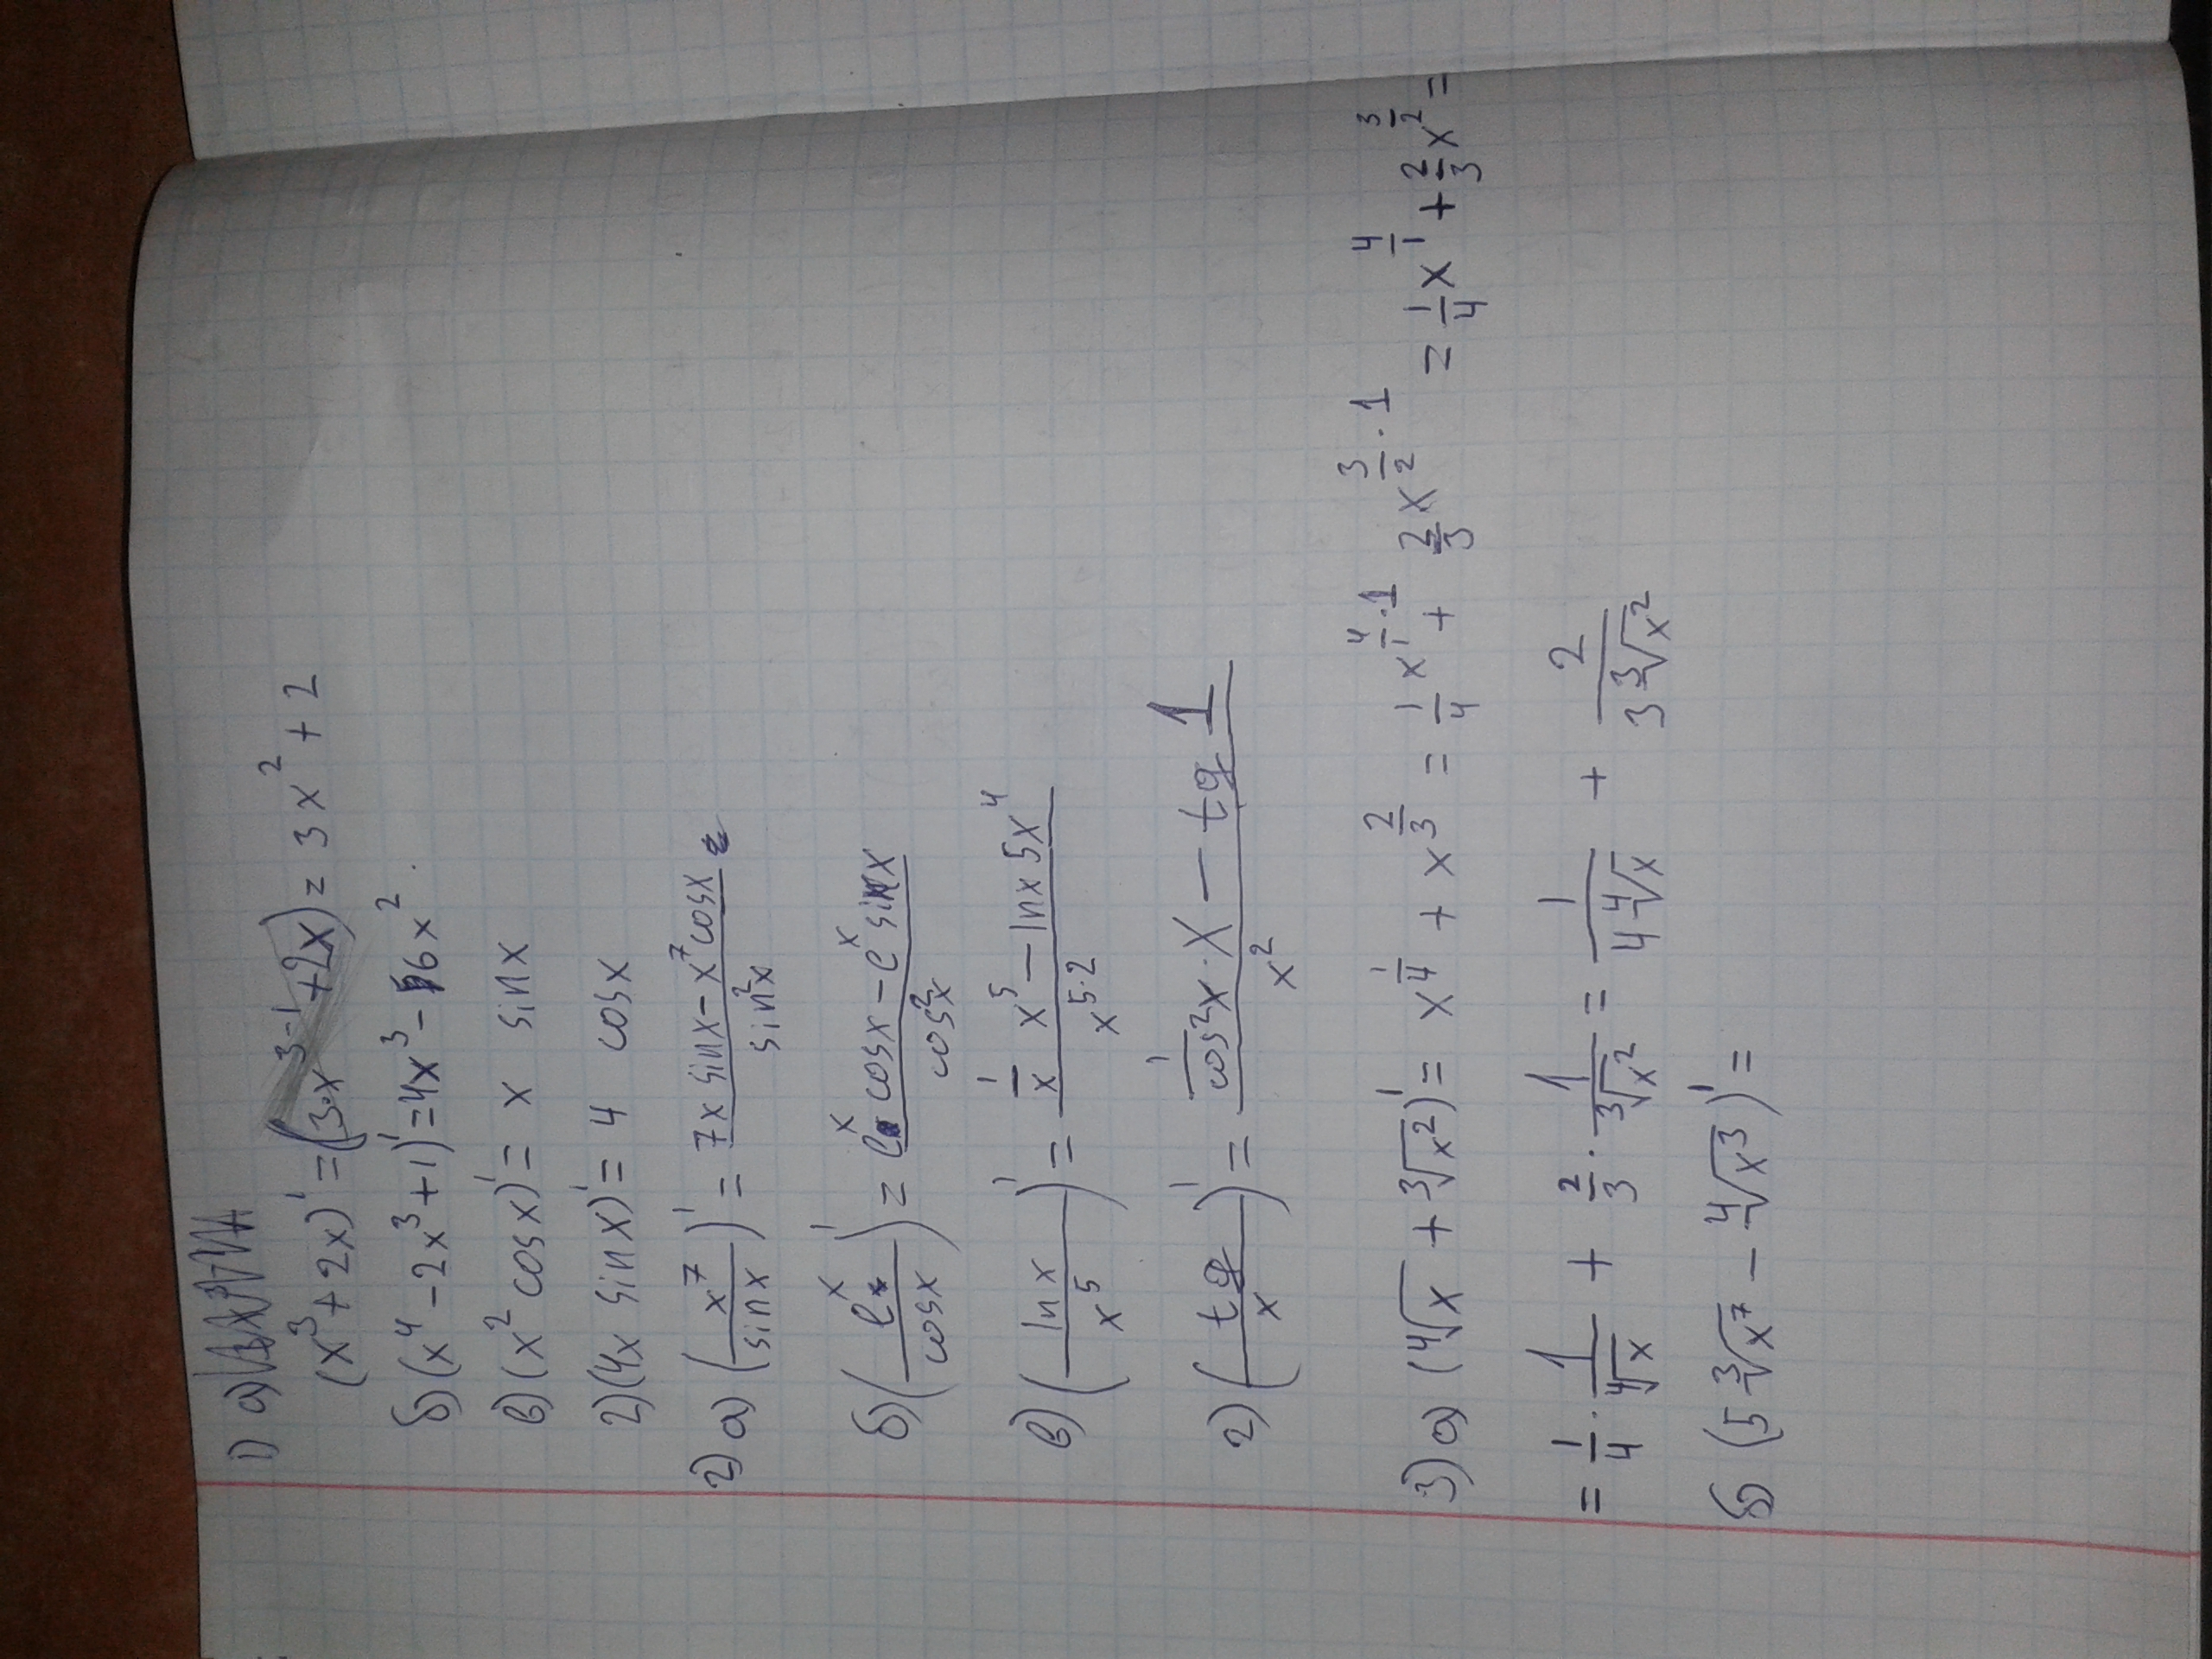 1) а)
(x³ + 2x)' = (3·x³⁻¹ + 2x) = 3x² + 2
б) (x⁴ - 2x³ + 1)' = 4x³ - 6x².
в) (x² cosx)' = x sinx
г) (4x sinx)' = 4 cosx
2) а) (x⁷/sinx)' = (7x sinx - x⁷cosx)/sin²x
б) (eˣ/cosx)' = (eˣ cosx - eˣ sinx)/cos²x
в) (lnx/x⁵)' = (1/x x⁵ - lnx 5x⁴)/x^(5·2)
г) (tg/x)' = (1/cos²x · x - tg 1)/x²
3) а) (⁴√x + ³√x²)' = x^(1/4) + x^(2/3) = 1/4 x^(4/1 · 1) + 2/3 x^(3/2 · 1) = 1/4 x^(4/1) + 2/3 x^(3/2) =
= 1/4 · 1/⁴√x + 2/3 · 1/³√x² = 1/(4 ⁴√x) + 2/(3 ³√x²)
б) (5 ³√x⁷ - ⁴√x³)' =